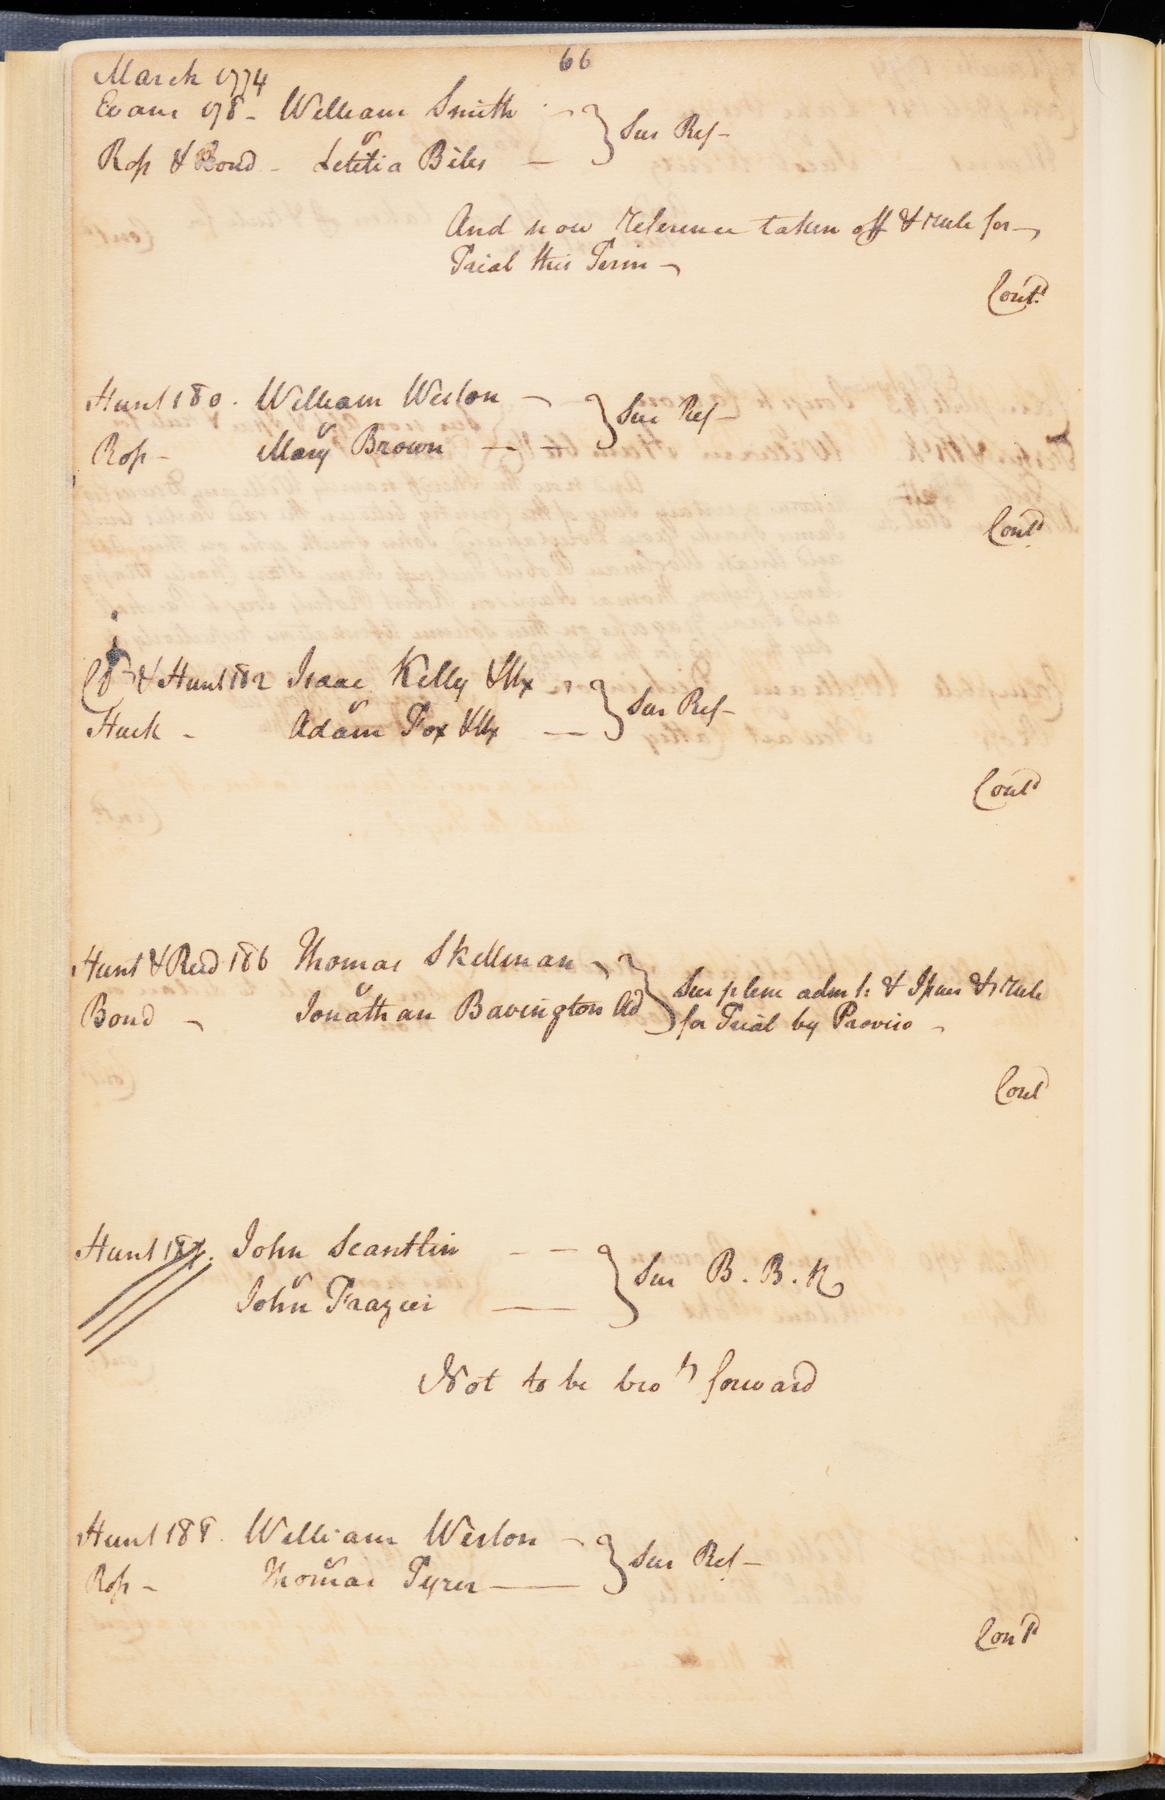 66
March 1774
Evans 178 - William Smith
v
Ross & Bond - Letitia Biles
Sur Ref -
And now reference taken off & rule for
Trial this Term
Contd
Hunt 180. William Weston
v
Ross - Mary Brown
Sur Ref -
Contd
& Hunt 182 Isaac Kelly & Ux
v
Huck - Adam Fox & Ux
Sur Ref -
Contd
Hunt & Reed 186 Thomas Skellman
v
Bond - Jonathan Bavington Ad
Sur plene admt: & Issue & rule
for Trial by Proviso -
Cont
Hunt John Scantlin
v
John Frazier
Sur B. B. R
Not to be brot forward
Hunt 188. William Weston
v
Ross - Thomas Tyrer
Sur Ref -
Contd